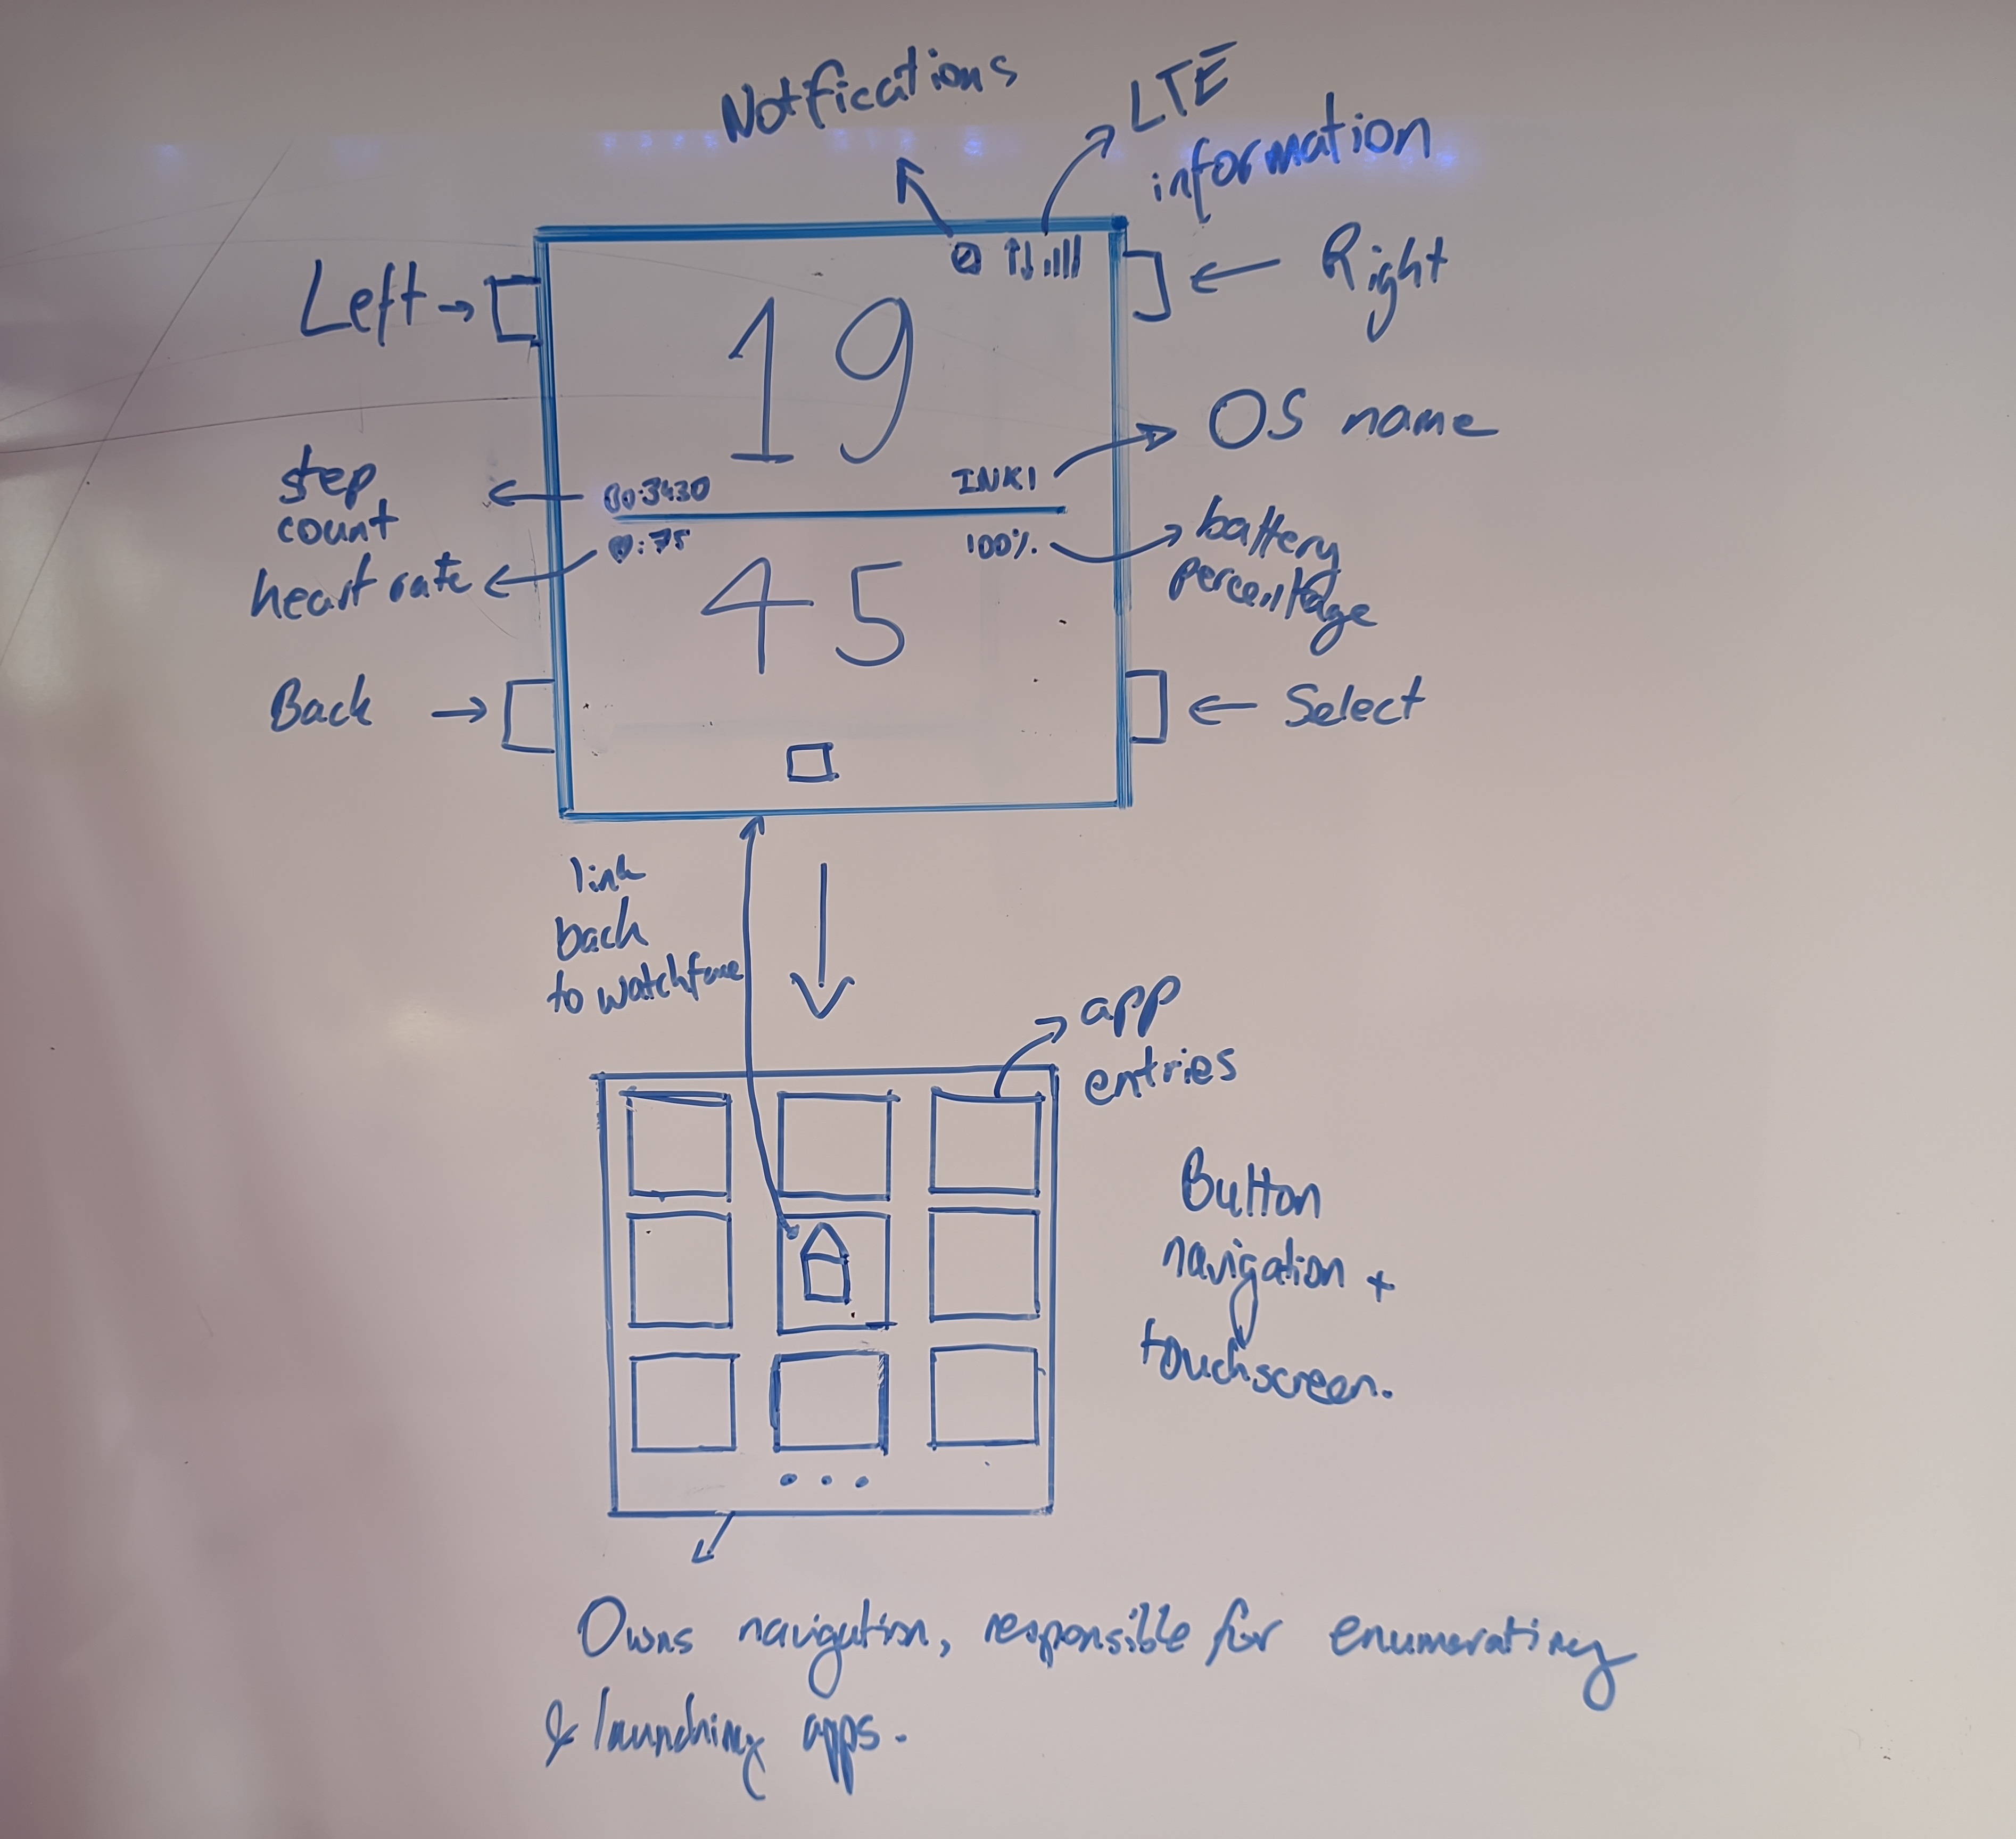 Notfications
LTE
information
Left
Right
19
OS name
step
count
:3430
INKI
:75
100%
battery
percentage
heart rate
45
Back
Select
link
back
to watchface
app
entries
Button
navigation +
touchscreen.
...
Owns navigation, responsible for enumerating
& launching apps.